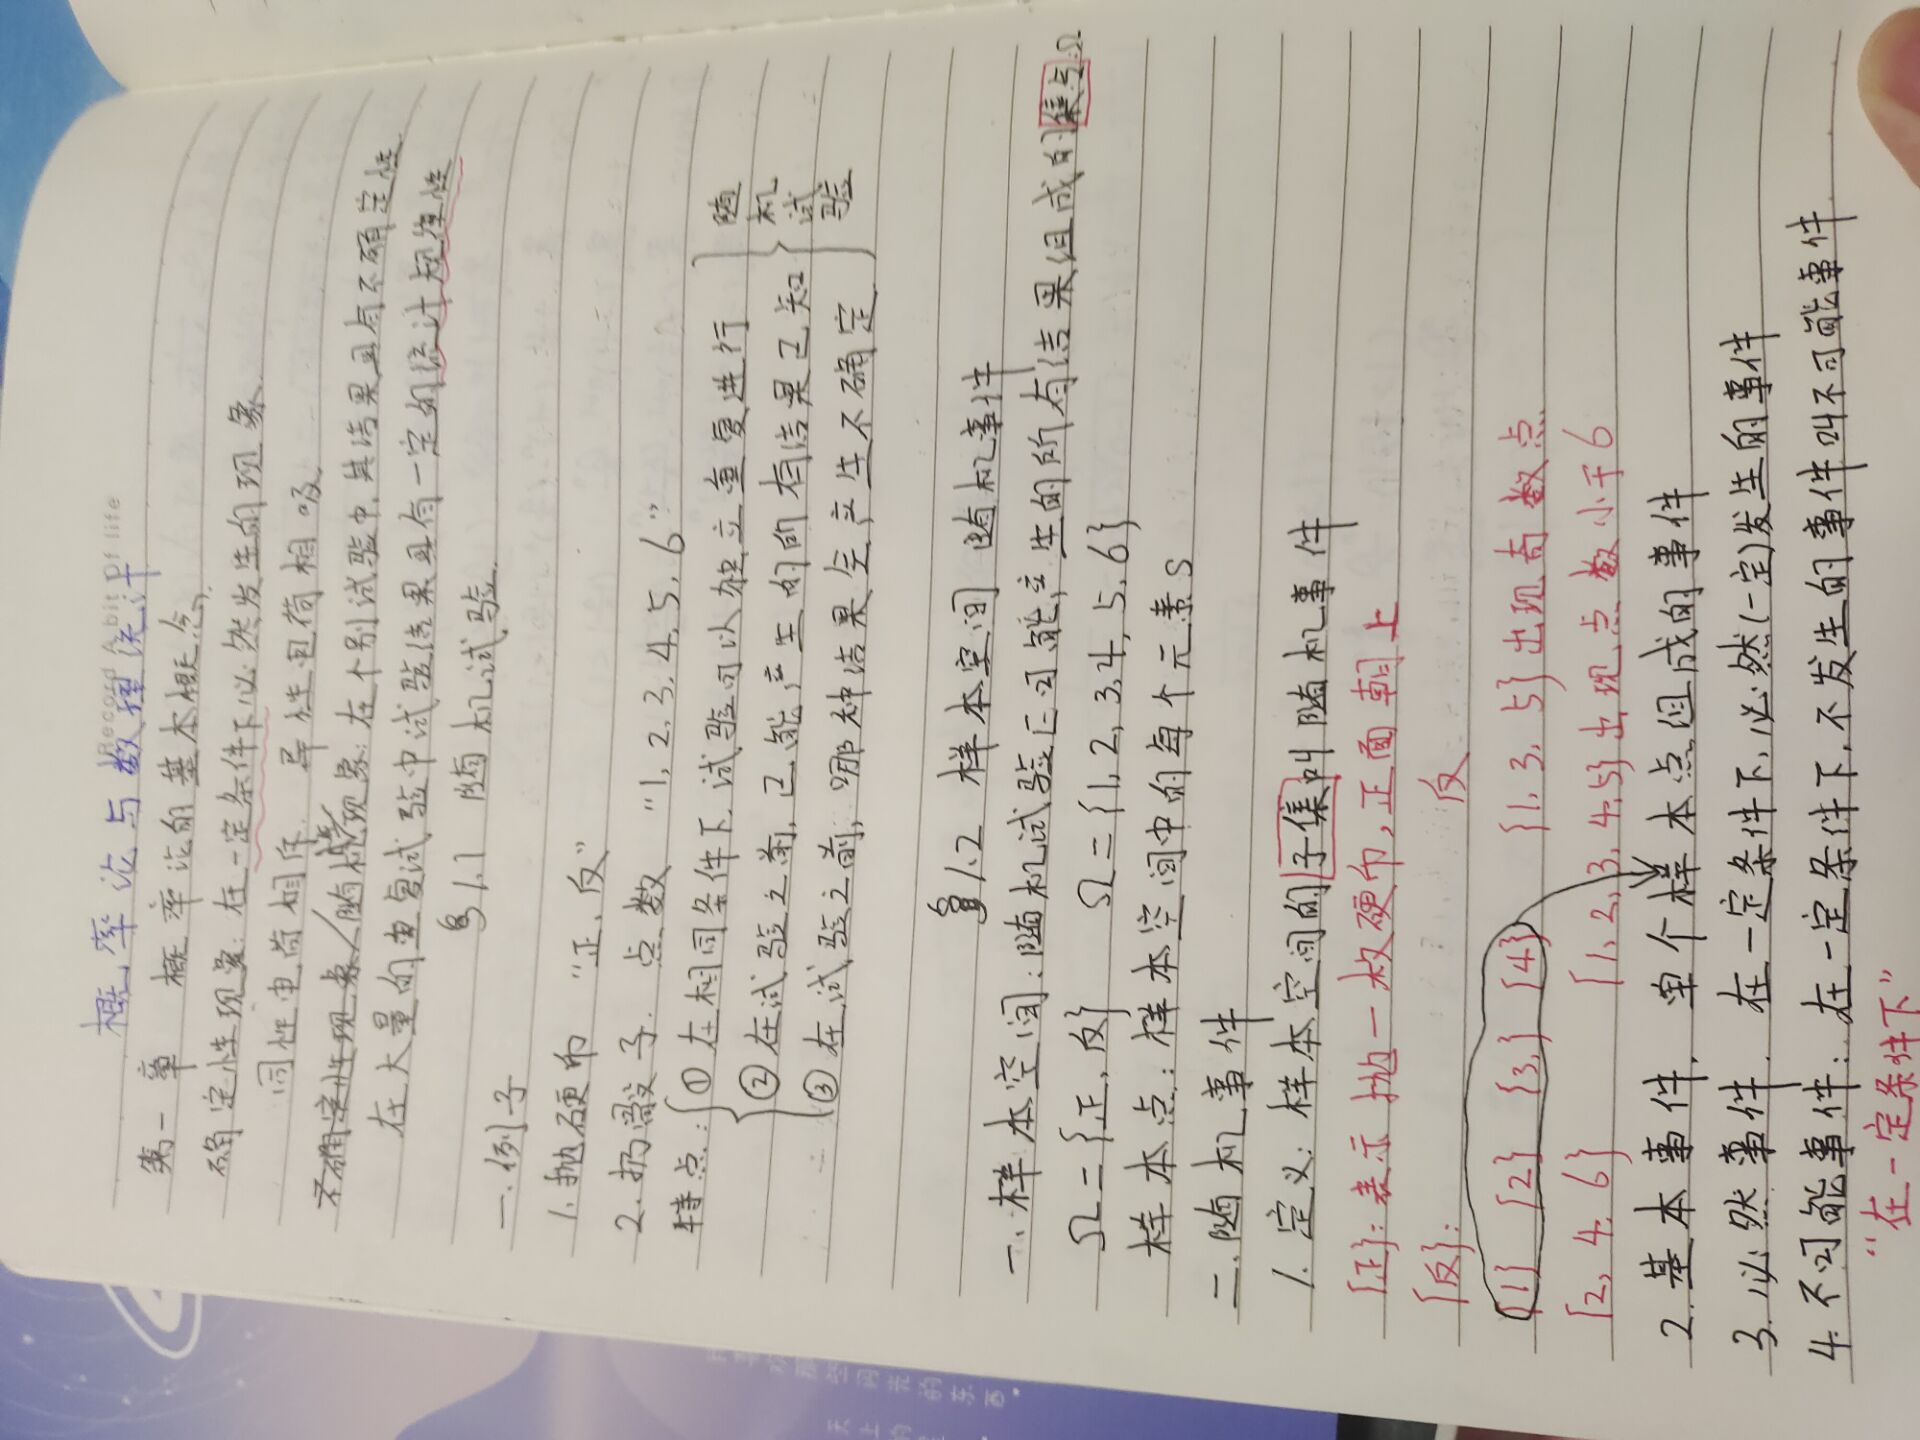 Record A bit of life
概率论与数理统计
第一章 概率论的基本概念
确定性现象：在一定条件下必然发生的现象
同性电荷相斥，异性电荷相吸
不确定性现象/随机现象：在个别试验中其结果具有不确定性
在大量的重复试验中试验结果具有一定的统计规律性
§1.1 随机试验
一.例子
1.抛硬币 “正,反”
2.扔骰子.点数 “1,2,3,4,5,6”
特点：①在相同条件下,试验可以独立重复进行
②在试验之前,已能产生的所有结果已知
③在试验之前,哪种结果会产生不确定
随机试验
§1.2 样本空间 随机事件
一.样本空间：随机试验E可能产生的所有结果组成的集合:Ω
Ω={正,反} Ω={1,2,3,4,5,6}
样本点：样本空间中的每个元素 S
二.随机事件
1.定义：样本空间的子集叫随机事件
{正}：表示抛一枚硬币,正面朝上
{反}： 反
{1} {2} {3} {4} {1,3,5}出现奇数点
{2,4,6} {1,2,3,4,5}出现点数小于6
2.基本事件.单个样本点组成的事件
3.必然事件.在一定条件下,必然(一定)发生的事件
4.不可能事件：在一定条件下,不发生的事件叫不可能事件
“在一定条件下”